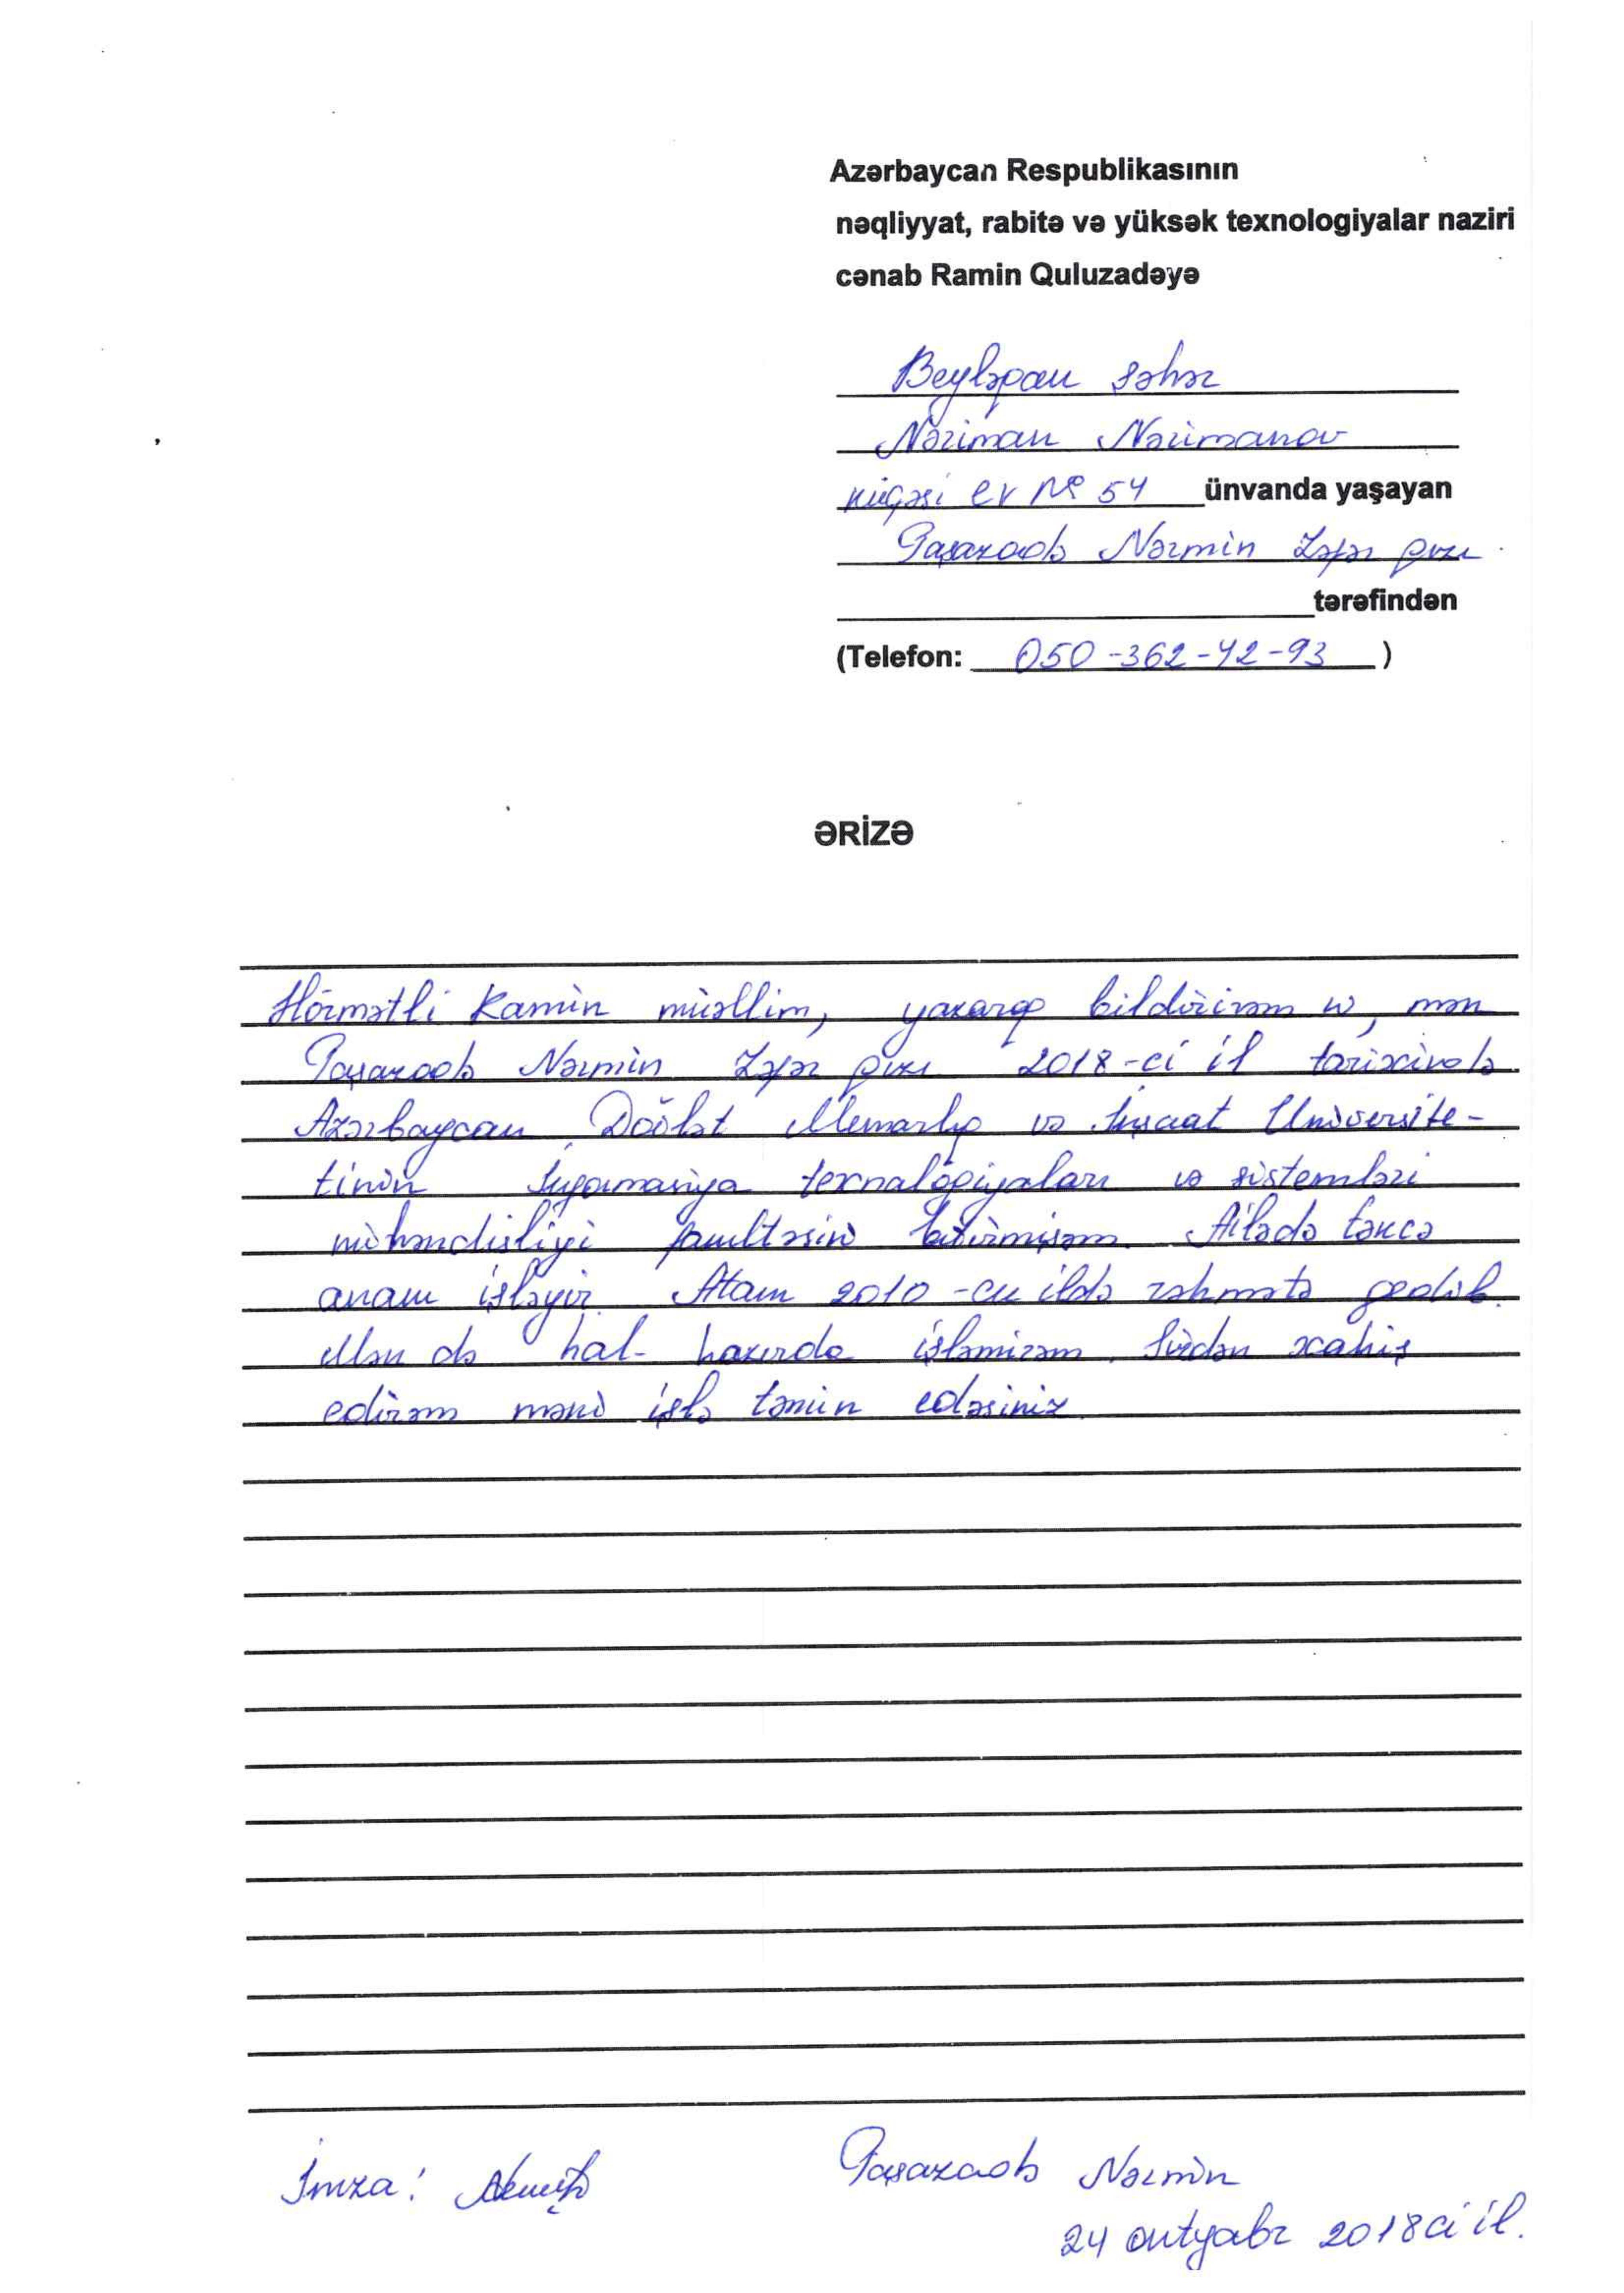 Azərbaycan Respublikasının
nəqliyyat, rabitə və yüksək texnologiyalar naziri
cənab Ramin Quluzadəyə
Beyləqan şəhər
Nəriman Nərimanov
küçəsi ev № 54 ünvanda yaşayan
Paşazadə Nərmin Zəfər qızı
tərəfindən
(Telefon: 050-362-42-93 )
ƏRİZƏ
Hörmətli Ramin müəllim, yazaraq bildirirəm ki, mən
Paşazadə Nərmin Zəfər qızı 2018-ci il tarixində
Azərbaycan Dövlət Memarlıq və İnşaat Universite-
tinin İnformasiya texnalogiyaları və sistemləri
mühəndisliyi fakultəsini bitirmişəm. Ailədə təkcə
anam işləyir. Atam 2010-cu ildə rəhmətə gedib.
Mən də hal-hazırda işləmirəm. Sizdən xahiş
edirəm məni işlə təmin edəsiniz.
İmza:
Paşazadə Nərmin
24 oktyabr 2018 ci il.